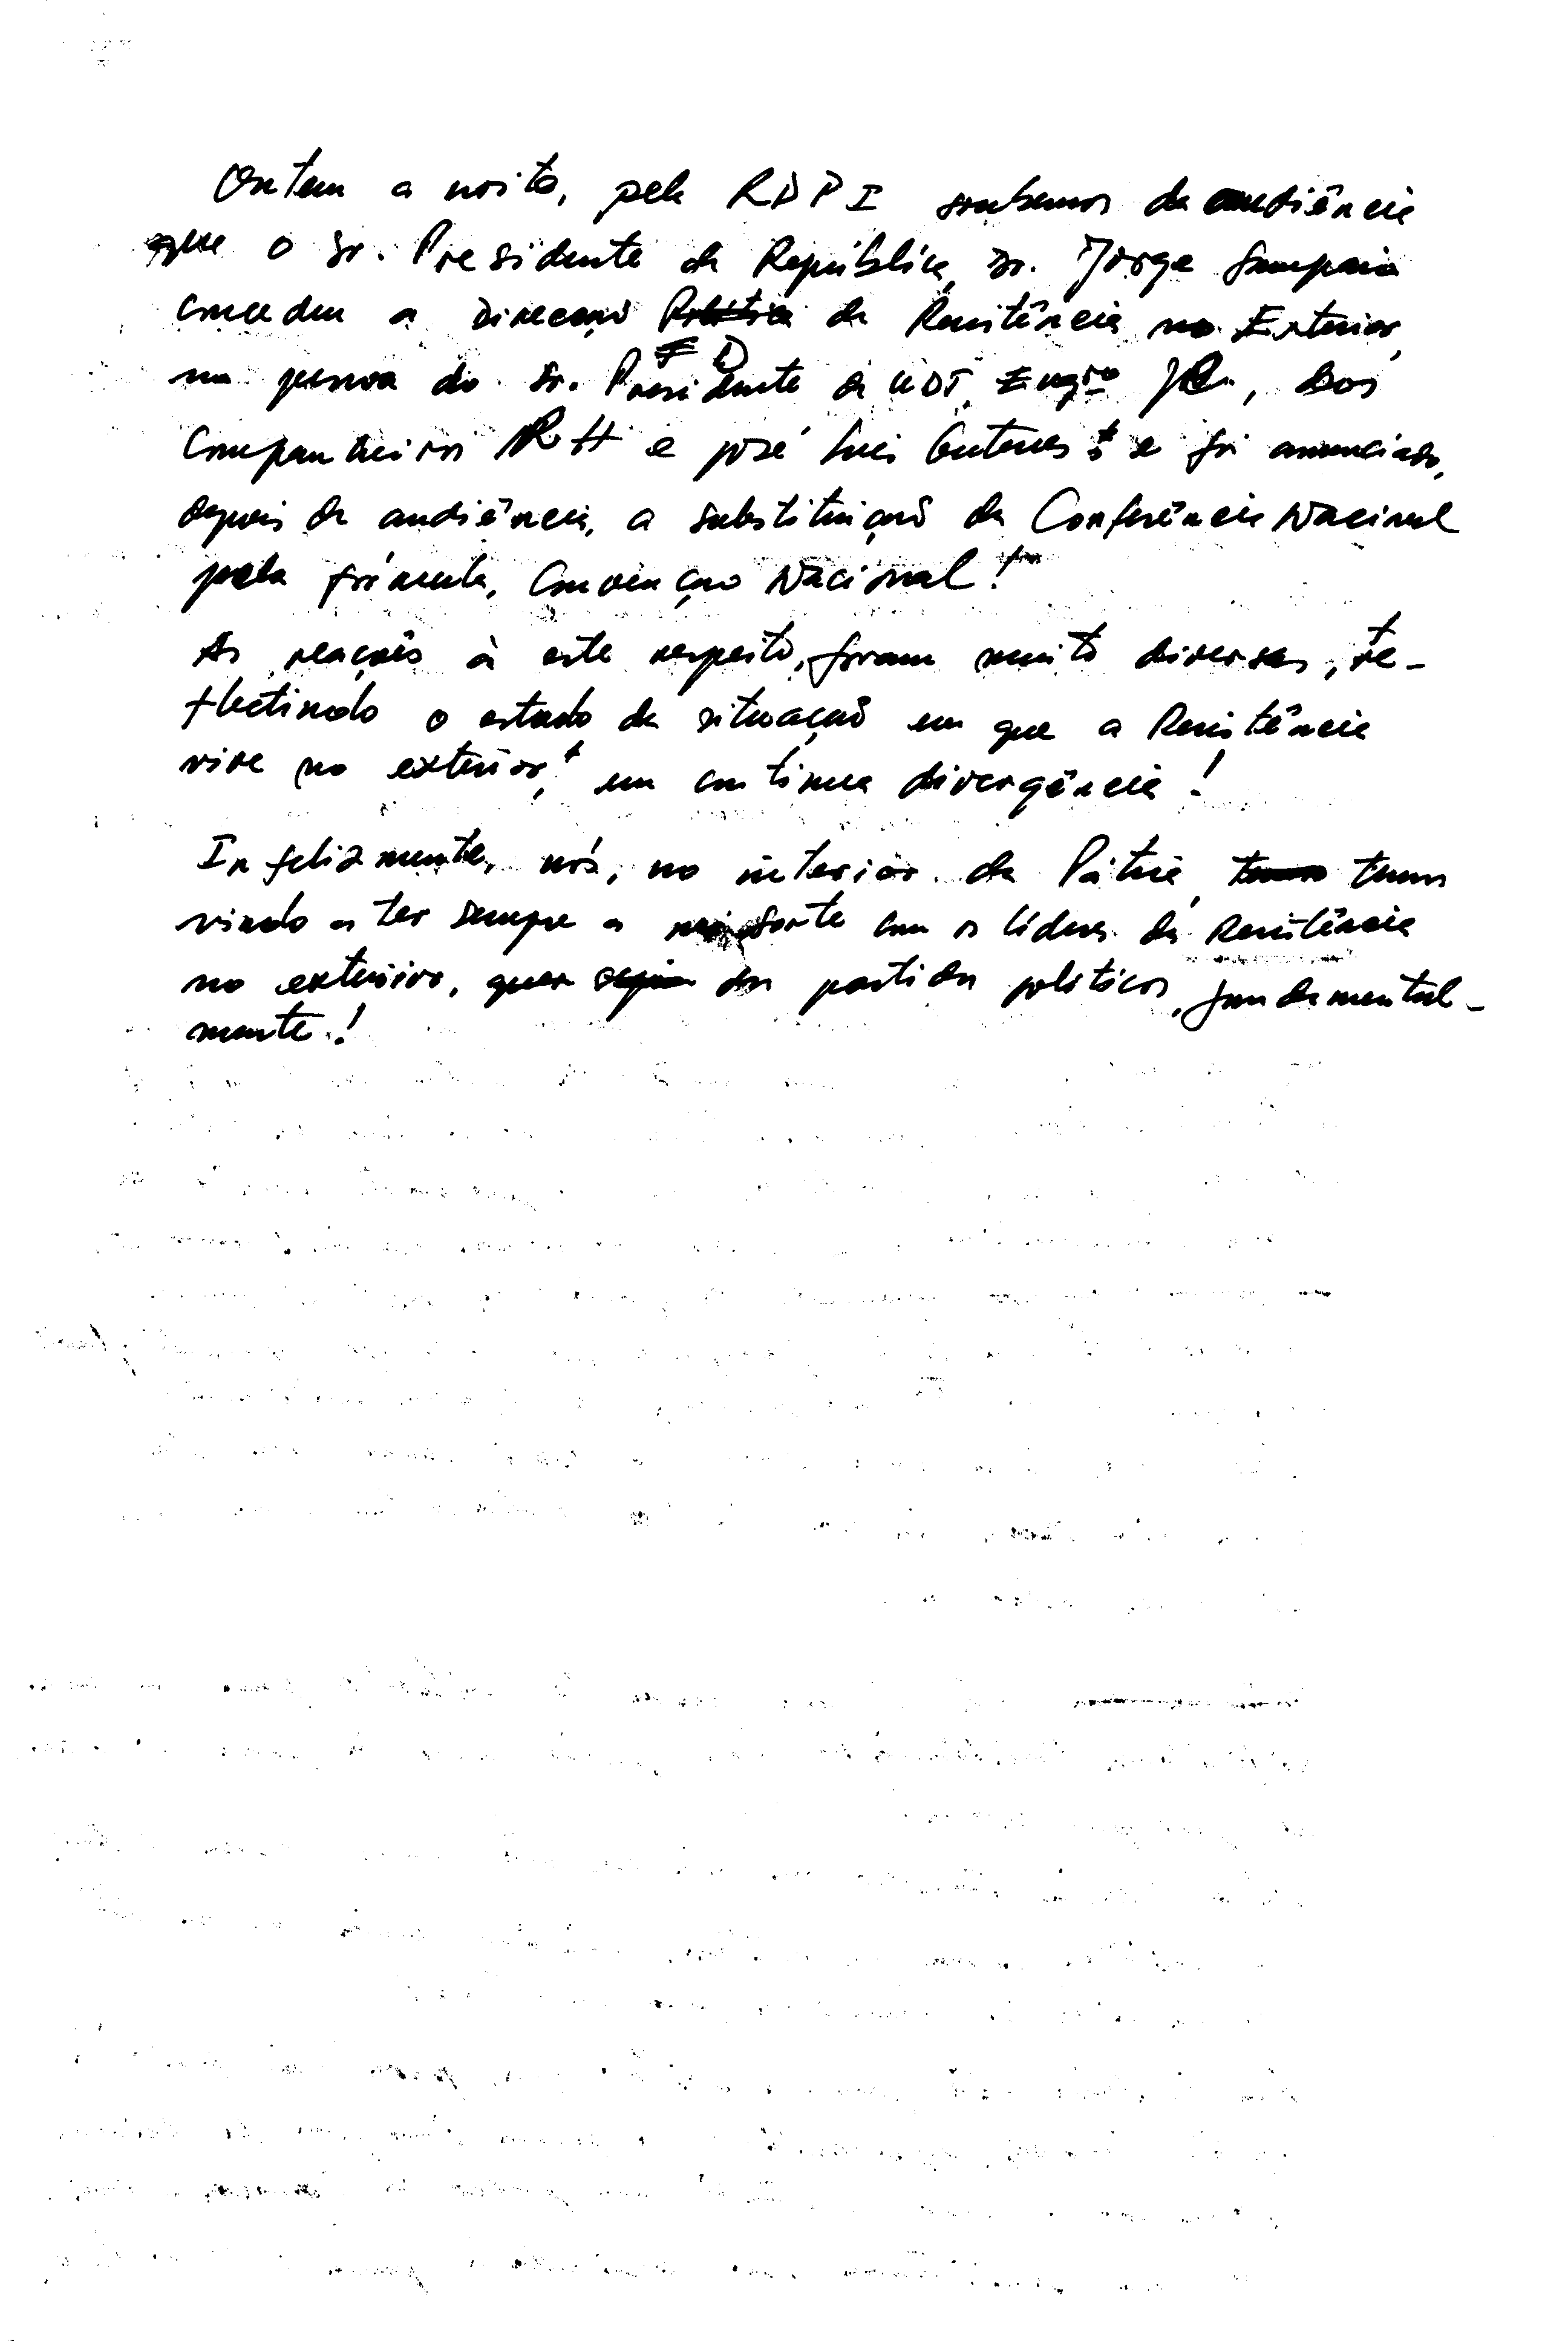 Ontem a noite, pela RDPI soubemos da audiência
que o Sr. Presidente da República, Dr. Jorge Sampaio
concedeu a Direcção Política da Resistência no Exterior,
na pessoa do Sr. Presidente da UDT, Engro JC, dos
Companheiros RH e José Luís Guterres e foi anunciado,
depois da audiência, a substituição da Conferência Nacional
pela fórmula, Convenção Nacional!
As reações à este respeito, foram muito diversas, re-
flectindo o estado da situação em que a Resistência
vive no exterior, em contínua divergência!
Infelizmente, nós, no interior da Pátria, temos
vindo a ter sempre a má sorte com os líderes da Resistência
no exterior, quer dos partidos políticos, fundamental-
mente!